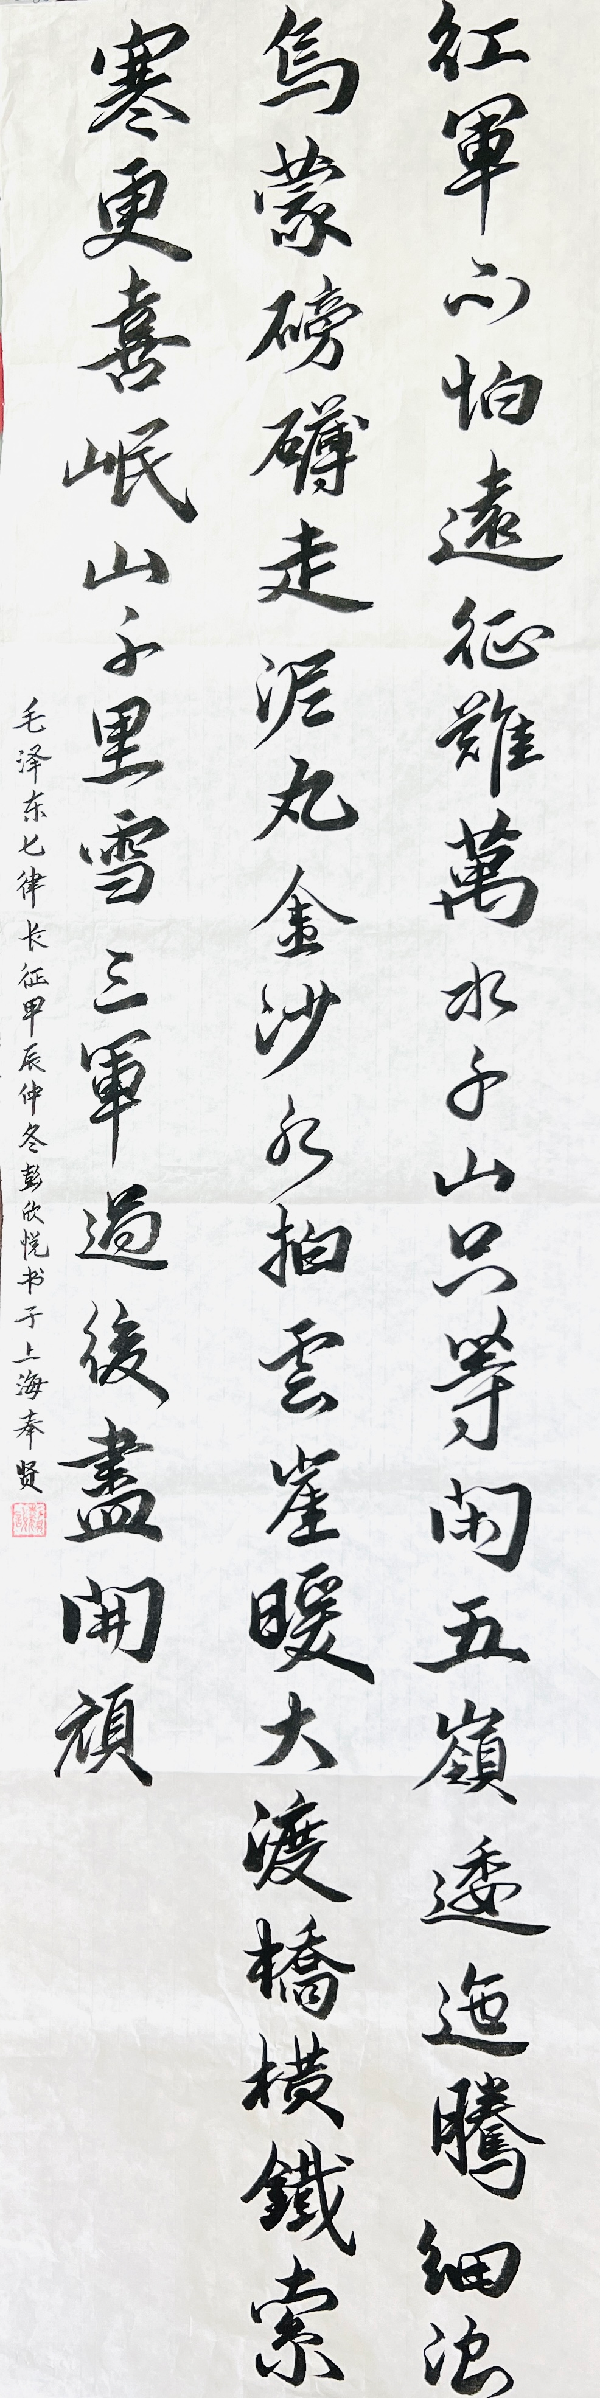 红軍不怕遠征難萬水千山只等閑五嶺逶迤騰细浪
烏蒙磅礴走泥丸金沙水拍雲崖暖大渡橋横鐵索
寒更喜岷山千里雪三軍過後盡開顔
毛泽东七律长征甲辰仲冬彭欣悦书于上海奉贤